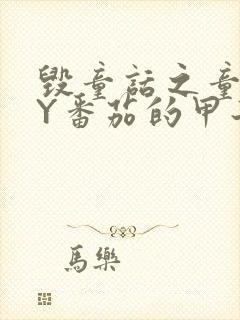 毁童话之童
Y番茄的甲
馬樂